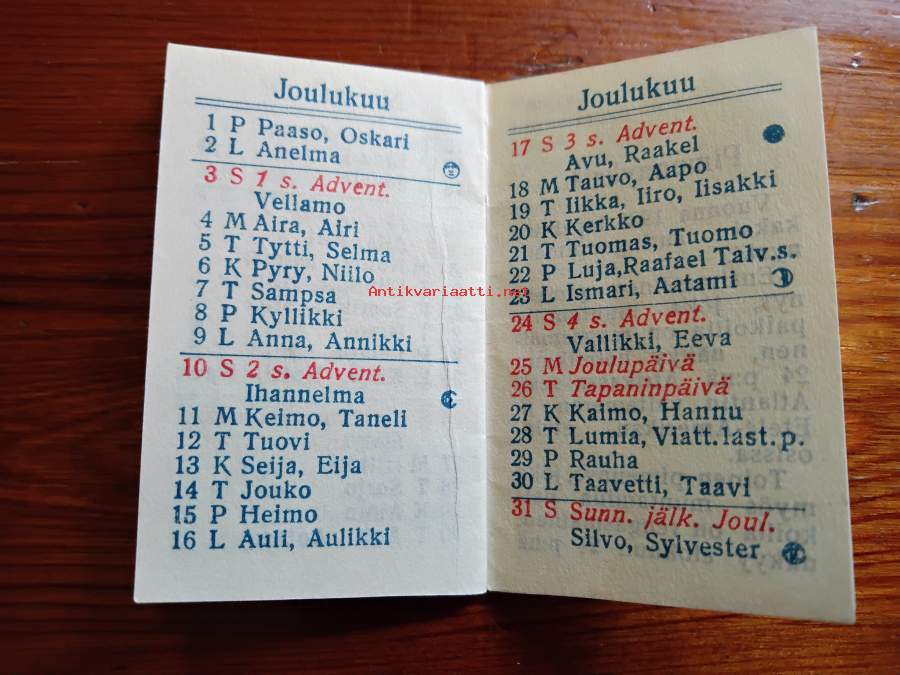 Joulukuu
1 P Paaso, Oskari
2 L Anelma
3 S 1 s. Advent.
Vellamo
4 M Aira, Airi
5 T Tytti, Selma
6 K Pyry, Niilo
7 T Sampsa
8 P Kyllikki
9 L Anna, Annikki
10 S 2 s. Advent.
Ihannelma
11 M Keimo, Taneli
12 T Tuovi
13 K Seija, Eija
14 T Jouko
15 P Heimo
16 L Auli, Aulikki
Joulukuu
17 S 3 s. Advent.
Avu, Raakel
18 M Tauvo, Aapo
19 T Iikka, Iiro, Iisakki
20 K Kerkko
21 T Tuomas, Tuomo
22 P Luja, Raafael Talv.s.
23 L Ismari, Aatami
24 S 4 s. Advent.
Vallikki, Eeva
25 M Joulupäivä
26 T Tapaninpäivä
27 K Kaimo, Hannu
28 T Lumia, Viatt. last. p.
29 P Rauha
30 L Taavetti, Taavi
31 S Sunn. jälk. Joul.
Silvo, Sylvester
Antikvariaatti.net